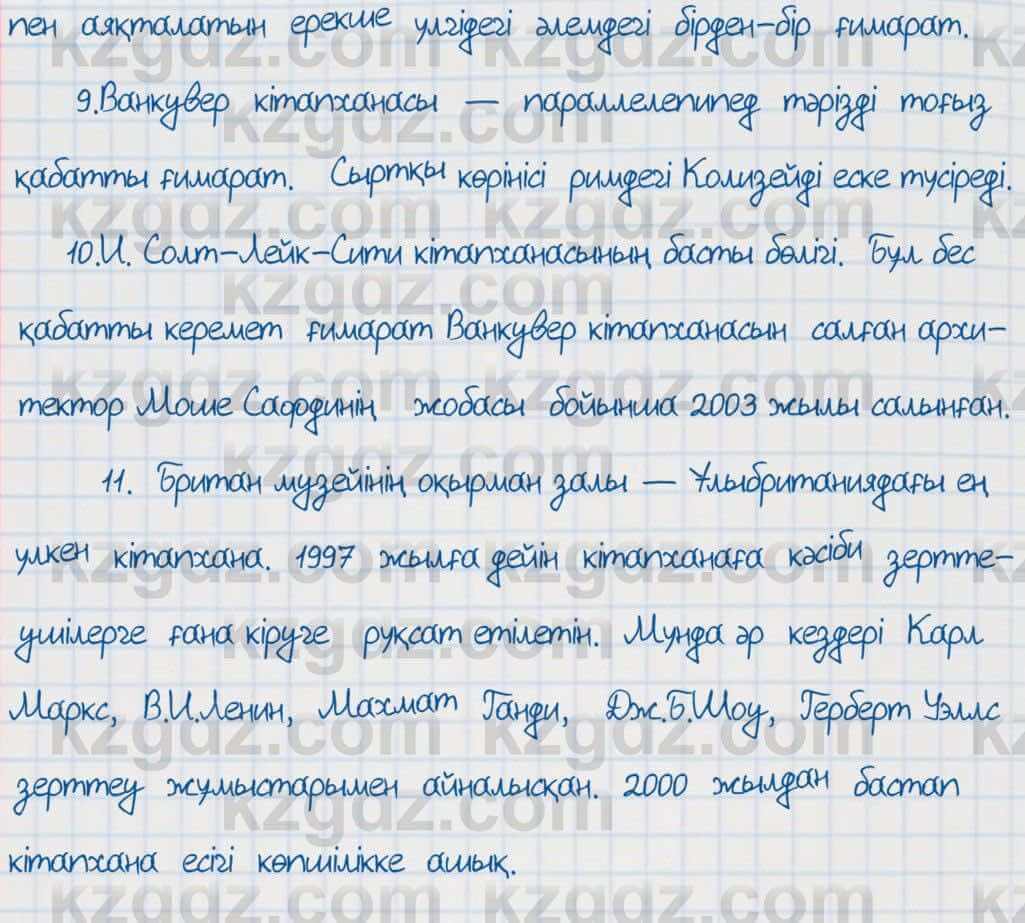 пен аяқталатын ерекше үлгідегі әлемдегі бірден-бір ғимарат.
9.Ванкувер кітапханасы – параллелепипед тәрізді тоғыз
қабатты ғимарат. Сыртқы көрінісі римдегі Колизейді еске түсіреді.
10.И. Солт-Лейк-Сити кітапханасының басты бөлігі. Бұл бес
қабатты керемет ғимарат Ванкувер кітапханасын салған архи-
тектор Моше Сафдинің жобасы бойынша 2003 жылы салынған.
11. Британ музейінің оқырман залы – Ұлыбританиядағы ең
үлкен кітапхана. 1997 жылға дейін кітапханаға кәсіби зертте-
ушілерге ғана кіруге рұқсат етілетін. Мұнда әр кездері Карл
Маркс, В.И.Ленин, Махмат Ганди, Дж.Б.Шоу, Герберт Уэллс
зерттеу жұмыстарымен айналысқан. 2000 жылдан бастап
кітапхана есігі көпшілікке ашық.
kzgdz.com